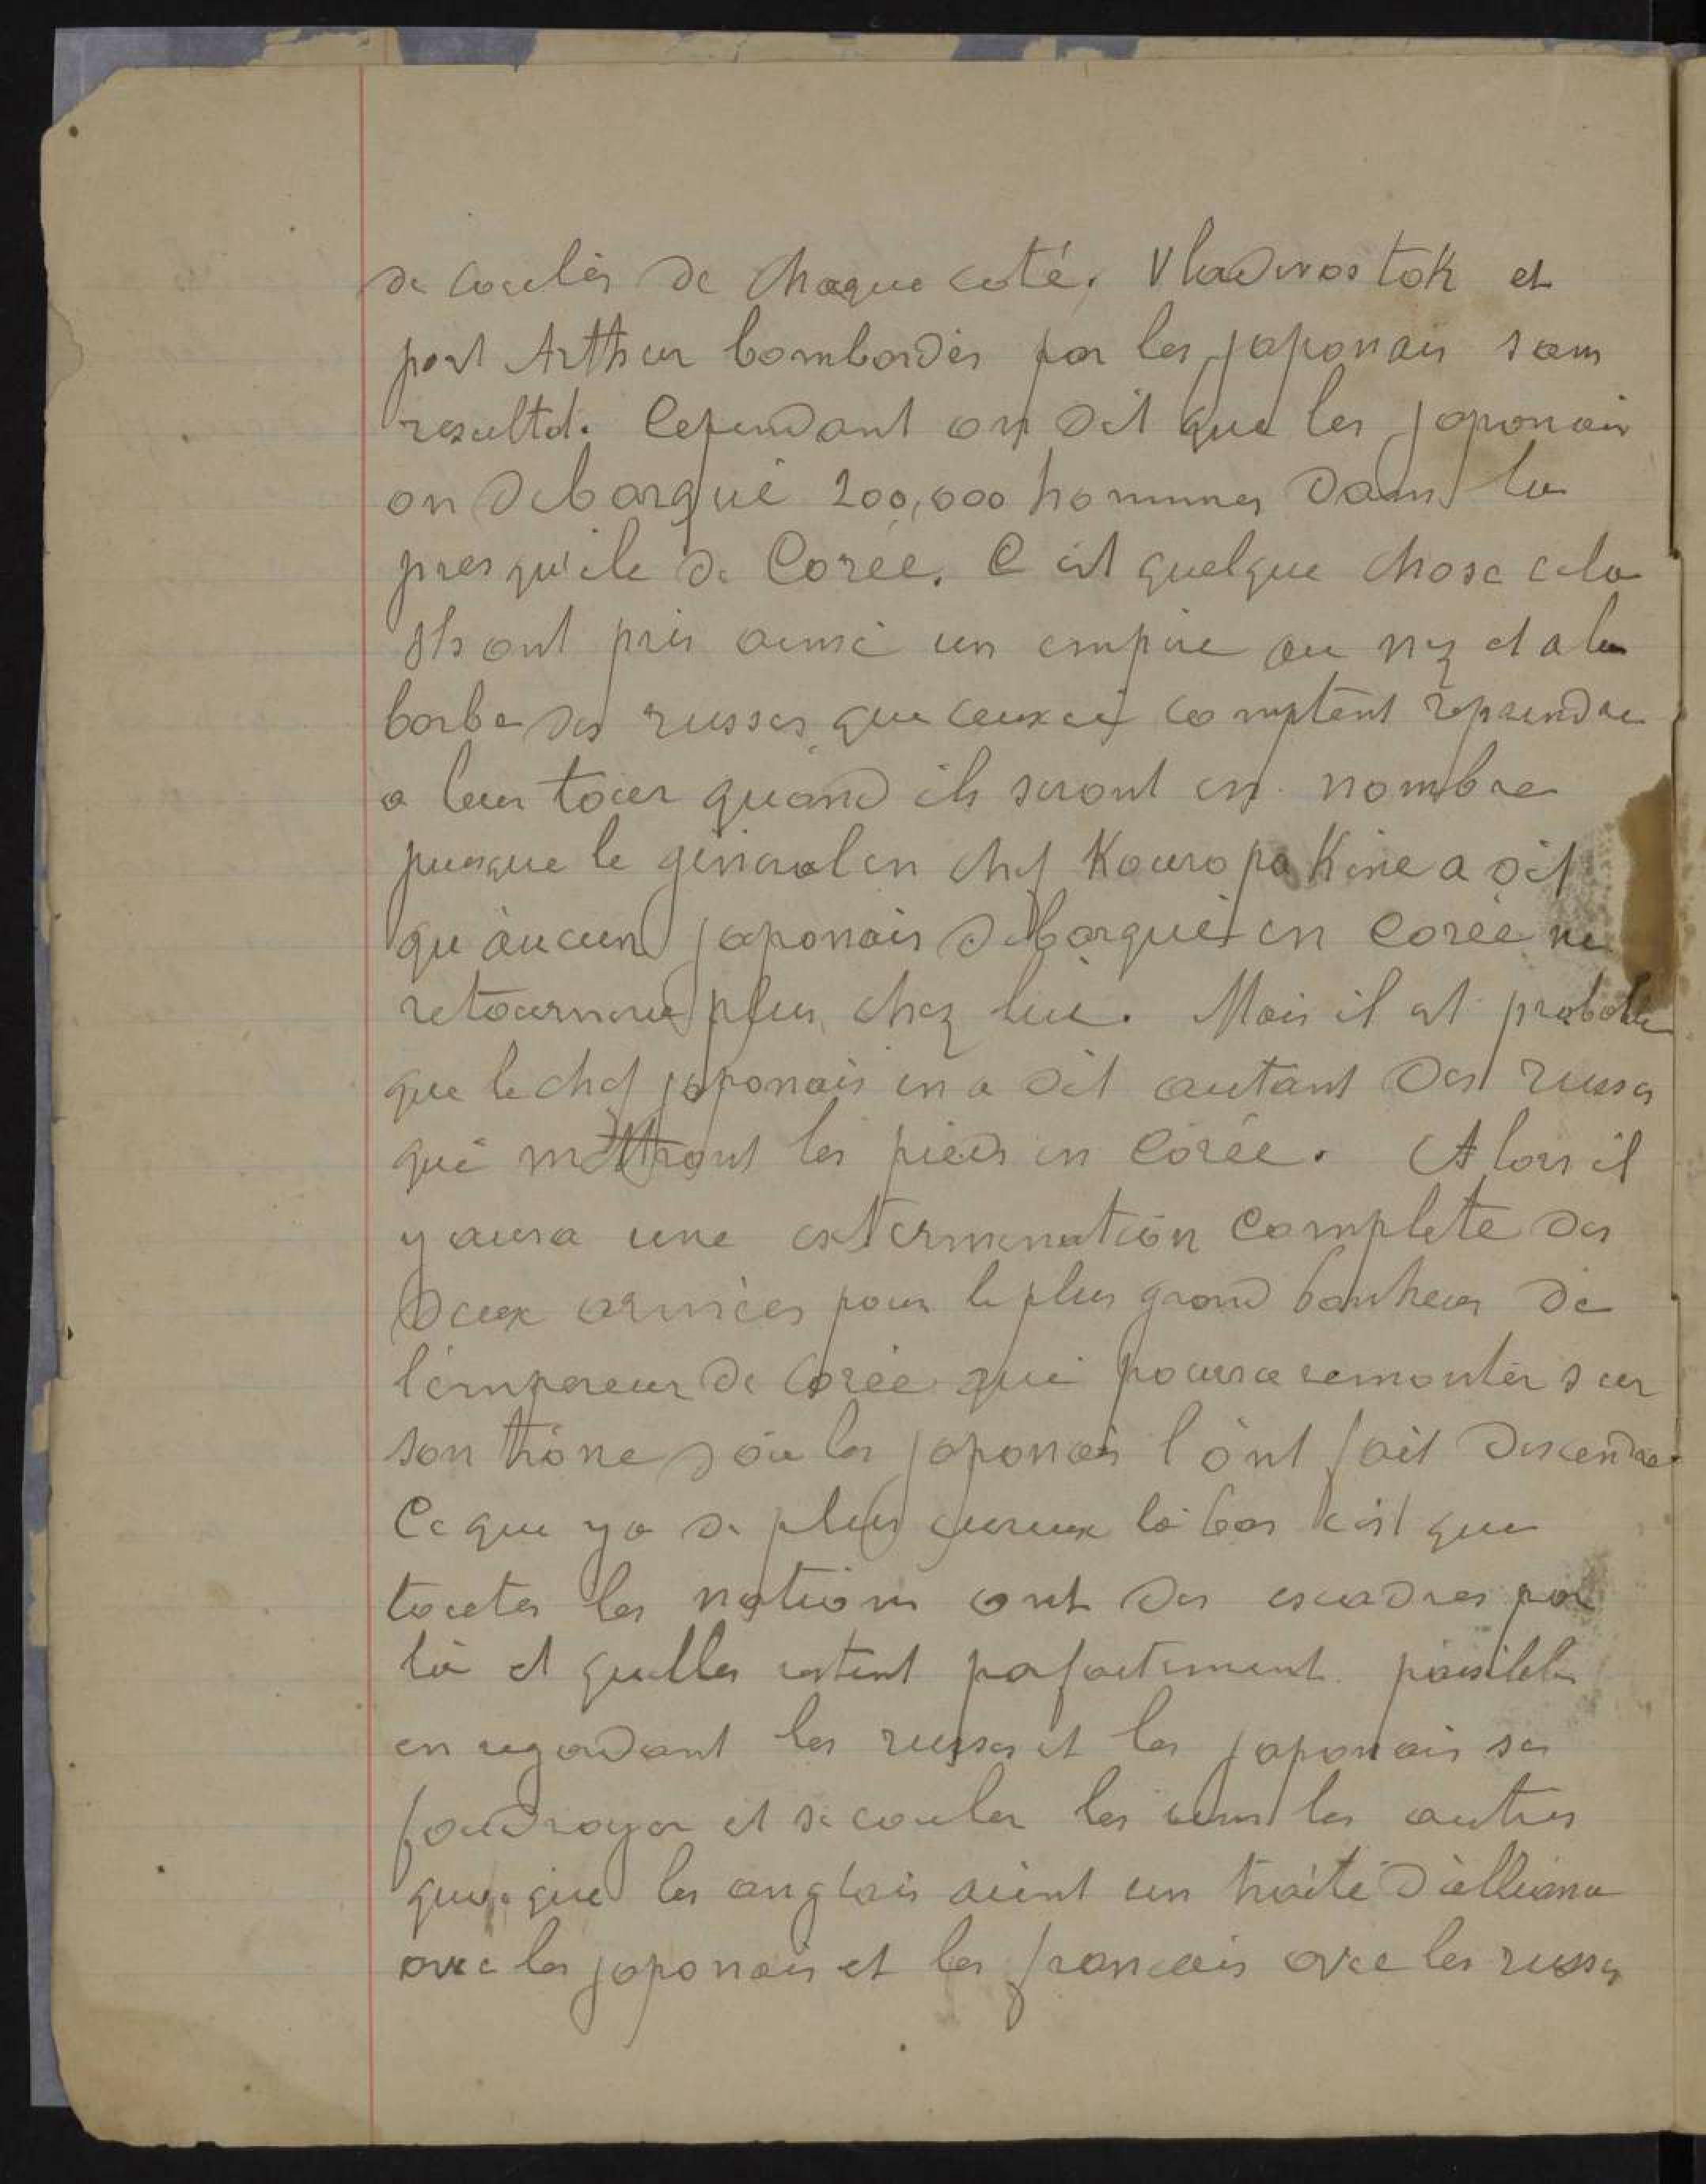 de coulés de chaque coté. Vladivostok et
port Arthur bombardés par les japonais sans
resultat. Cependant on dit que les japonais
on debarqué 200,000 hommes dans la
presqu'ile de Corée. C est quelque chose cela
Ils ont pris ainsi un empire au nez et a la
barbe des russes que ceux ci comptent reprendre
a leur tour quand ils seront en nombre
puisque le général en chef Kouropa Kine a dit
qu'aucun japonais débarqué en Corée ne
retournera plus chez lui. Mais il est probable
que le chef japonais en a dit autant des russes
qui mettront les pieds en Corée. Alors il
y aura une extermination complete des
deux armées pour le plus grand bonheur de
l'empereur de Corée qui pourra remonter sur
son trône d'ou les japonais l'ont fait descendre.
Ce que y a de plus curieux là bas c'est que
toutes les nations ont des escadres par
là et quelles restent parfaitement paisibles
en regardant les russes et les japonais se
foudroyer et se couler les uns les autres
quoique les anglais aient un traité d'alliance
avec les japonais et les francais avec les russes